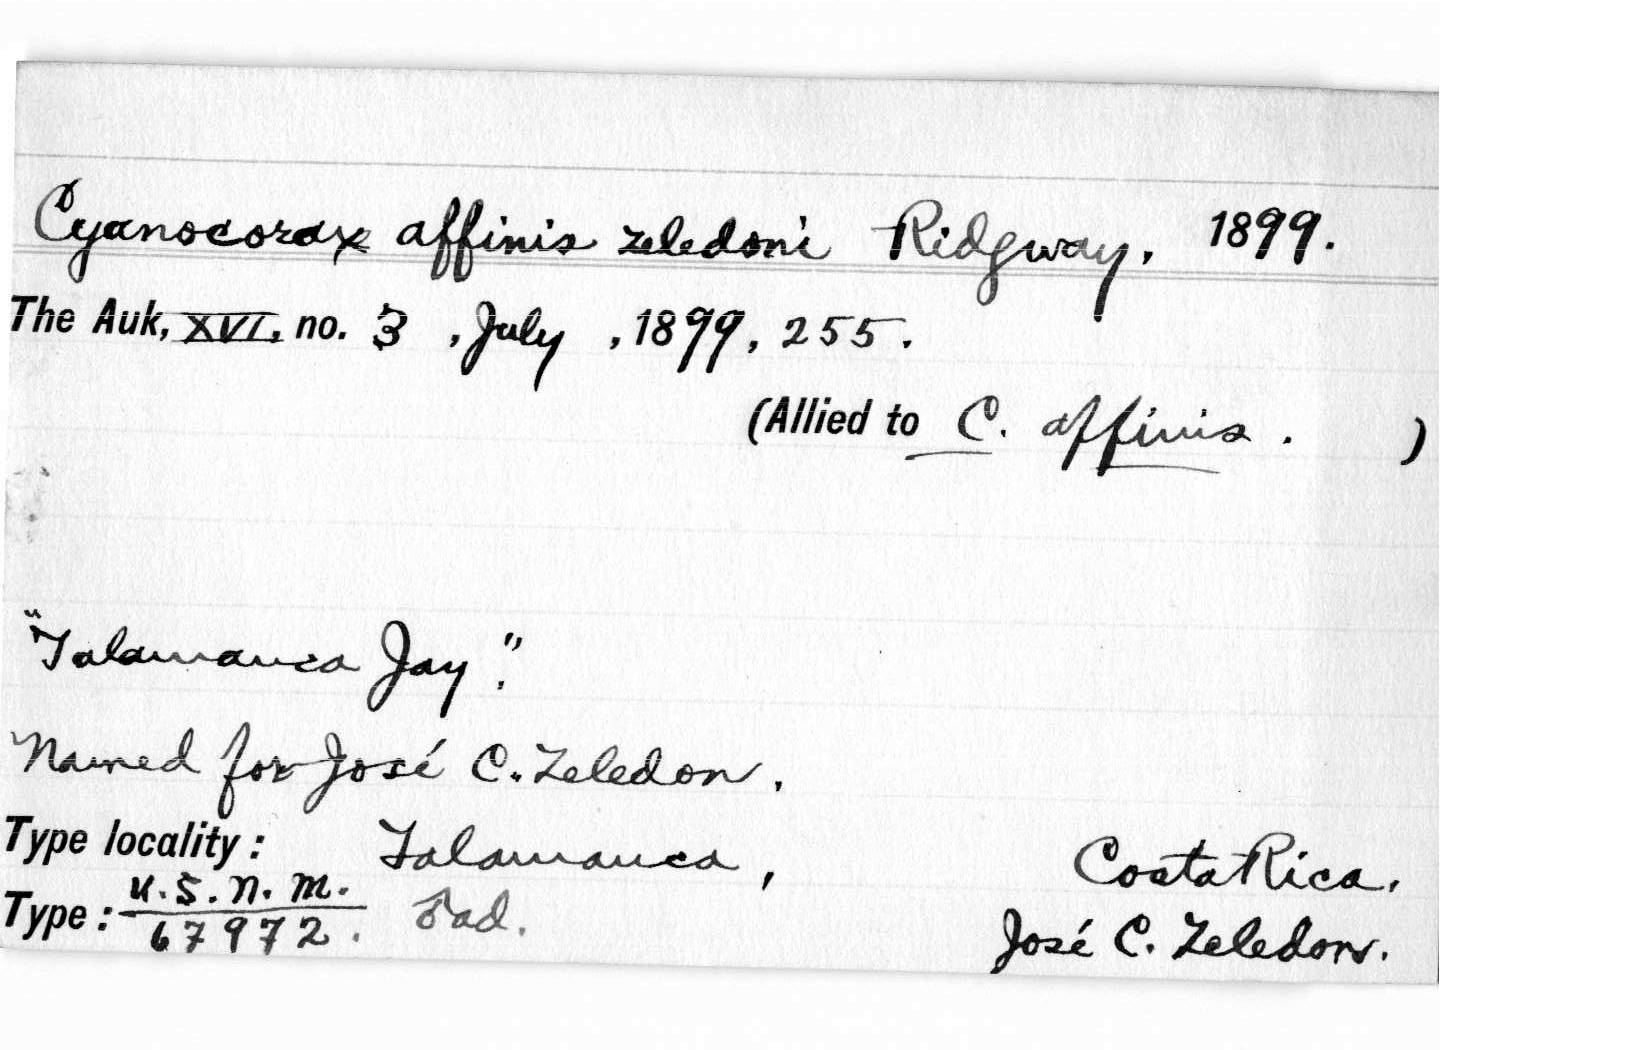 Cyanocorax affinis zeledoni Ridgway, 1899.
The Auk, XVI, no. 3, July, 1899, 255.
(Allied to C. affinis. )
"Talamanca Jay".
Named for José C. Zeledon.
Type locality: Talamanca, Costa Rica.
Type: U.S.N.M. 67972. ♂ ad. José C. Zeledon.